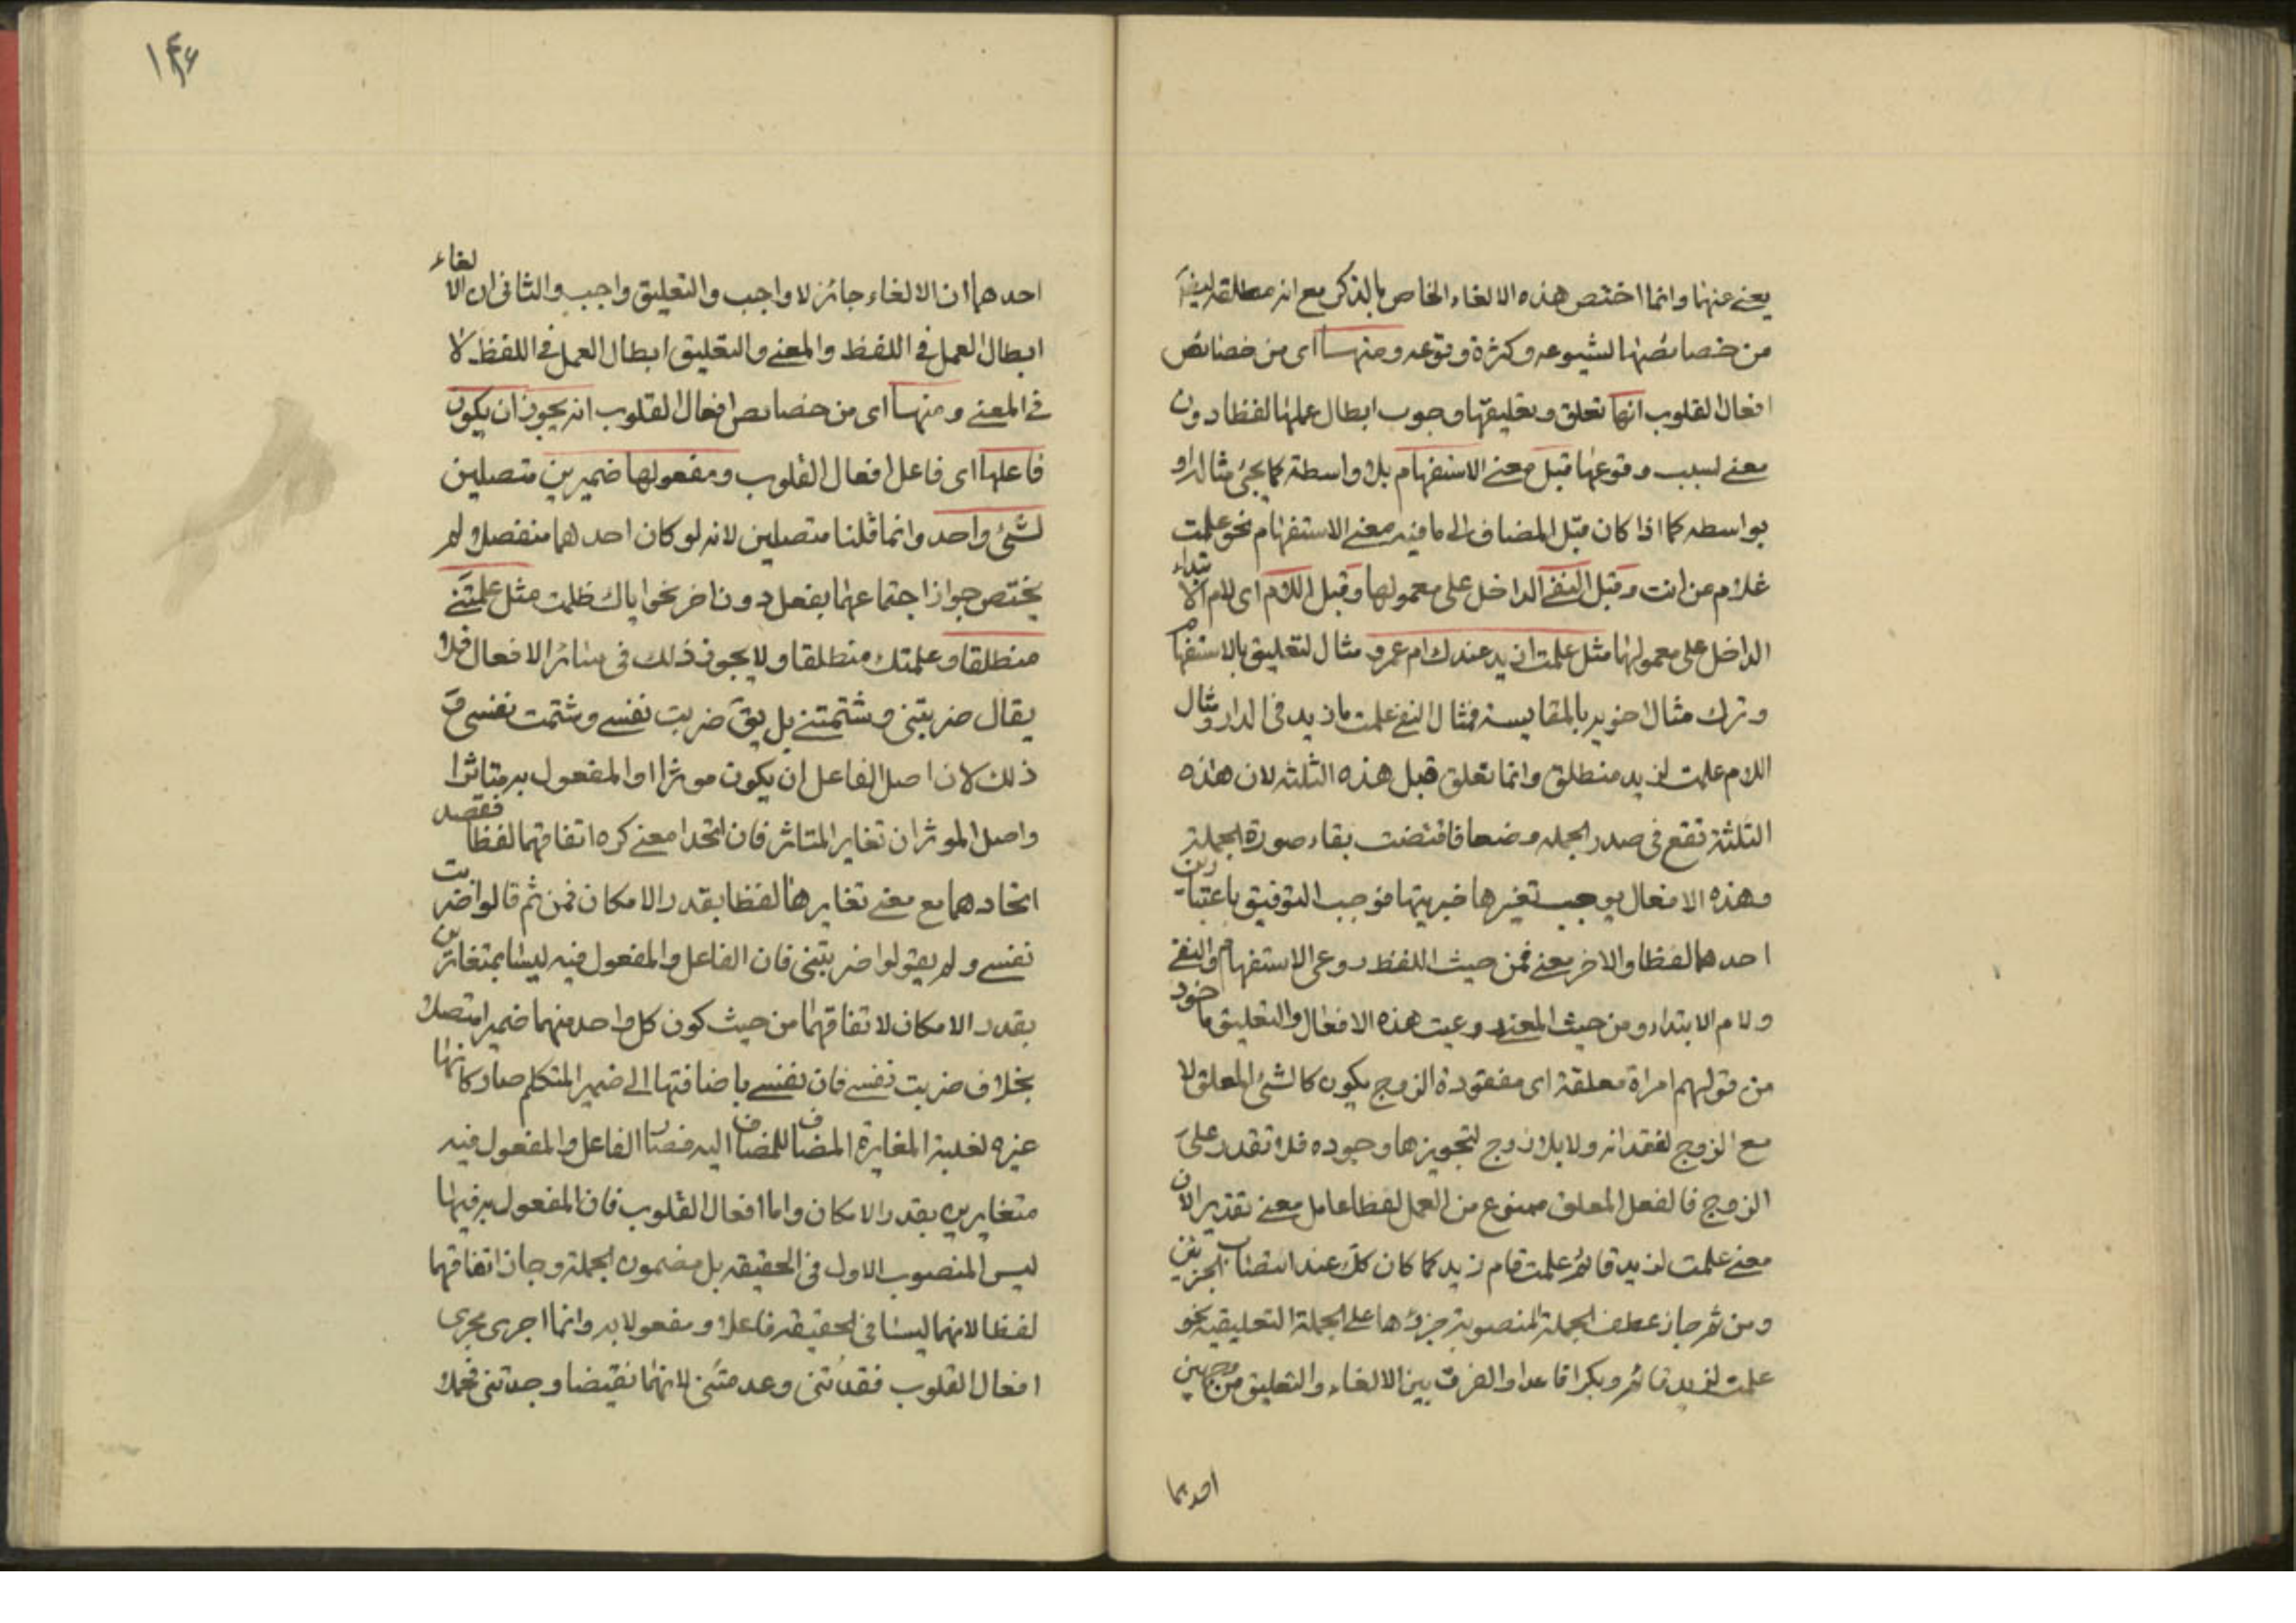 يعنے عنها وانما اختص هذه الالغاء الخاص بالذكر مع انه مطلقه ايضا
من خصائصها لشيوعه وكثرة وقوعه ومنها اى من خصائص
افعال القلوب انها تعلق وتعليقها وجوب ابطال عملها لفظا دون
معنے لسبب وقوعها قبل معنے الاستفهام بلا واسطة كما يجئ مثاله او
بواسطه كما اذا كان قبل المضاف الى ما فيه معنے الاستفهام نحو علمت
غلام من انت وقبل النفے الداخل على معمولها وقبل اللام اى لام الابتداء
الداخل على معمولها مثل علمت ازيد عندك ام عمرو مثال لتعليق بالاستفهام
وترك مثال اخويه بالمقايسة فمثال النفے علمت ما زيد فى الدار ومثال
اللام علمت لزيد منطلق وانما تعلق قبل هذه الثلثه لان هذه
الثلثة تقع فى صدر الجمله وضعا فاقتضت بقاء صورة الجملة
وهذه الافعال يوجب تغيرها خبريتها فوجب التوفيق باعتبارين
احدهما لفظا والاخر معنے فمن حيث اللفظ روعى الاستفهام والنفے
ولام الابتداء ومن حيث المعنے روعيت هذه الافعال والتعليق ماخوذ
من قولهم امراة معلقة اى مفقودة الزوج يكون كالشئ المعلق لا
مع الزوج لفقدانه ولا بلا زوج لتجويزها وجوده فلا تقدر على
الزوج فالفعل المعلق ممنوع من العمل لفظا عامل معنے تقديرا لان
معنے علمت لزيد قائم علمت قيام زيد كما كان كك عند انتصاب الجزئين
ومن ثم جاز عطف الجملة المنصوبة جزؤها على الجملة التعليقيه نحو
علمت لزيد قائم وبكرا قاعدا والفرق بين الالغاء والتعليق من وجهين
احدهما
۱۴۶
احدهما ان الالغاء جائز لا واجب والتعليق واجب والثانى ان الالغاء
ابطال العمل فے اللفظ والمعنے والتعليق ابطال العمل فے اللفظ لا
فے المعنے ومنها اى من خصايص افعال القلوب انه يجوز ان يكون
فاعلها اى فاعل افعال القلوب ومفعولها ضميرين متصلين
لشئ واحد وانما قلنا متصلين لانه لو كان احدهما منفصلا لم
يختص جواز اجتماعهما بفعل دون اخر نحو اياك ظلمت مثل علمتنے
منطلقا وعلمتك منطلقا ولا يجوز ذلك فى سائر الافعال فلا
يقال ضربتنى وشتمتنے بل يق ضربت نفسے وشتمت نفسى و
ذلك لان اصل الفاعل ان يكون موثرا والمفعول به متاثرا
واصل الموثر ان تغاير المتاثر فان اتحدا معنے كره اتفاقهما لفظا فقصد
اتحادهما مع معنے تغايرهما لفظا بقدر الامكان فمن ثم قالوا ضربت
نفسے ولم يقولوا ضربتنى فان الفاعل والمفعول فيه ليسا بمتغايرين
بقدر الامكان لاتفاقهما من حيث كون كل واحد منهما ضميرا متصلا
بخلاف ضربت نفسے فان نفسے باضافتها الى ضمير المتكلم صار كانها
غيره لغلبة المغايرة المضاف للمضاف اليه فصار الفاعل والمفعول فيه
متغايرين بقدر الامكان واما افعال القلوب فان المفعول به فيها
ليس المنصوب الاول فى الحقيقه بل مضمون الجملة وجاز اتفاقهما
لفظا لانهما ليسا فى الحقيقه فاعلا ومفعولا به وانما اجرى مجرى
افعال القلوب فقدتنى وعدمتنے لانهما نقيضا وجدتنى فحملا